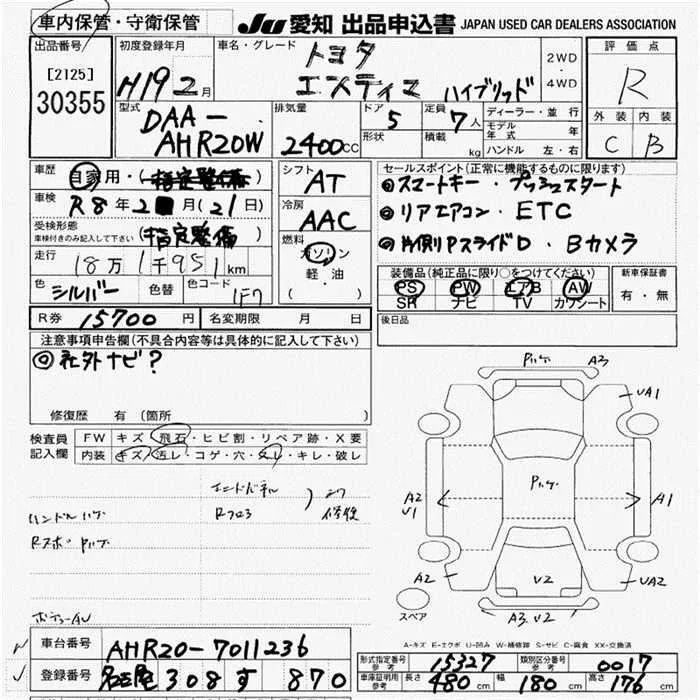 車内保管・守衛保管
JU 愛知 出品申込書 JAPAN USED CAR DEALERS ASSOCIATION
出品番号
[2125]
30355
初度登録年月
H19 2月
車名・グレード
トヨタ
エスティマ ハイブリッド
2WD
・
4WD
評価点
R
外装 内装
C B
型式
DAA-
AHR20W
排気量
2400cc
ドア
5
形状
定員
7人
積載
kg
ディーラー・並行
モデル年式 年
ハンドル 左・右
車歴
自家用・(指定整備)
車検
R8年2月(21日)
受検形態
車検付きのみ記入して下さい
(指定整備)
走行
18万1千951km
色
シルバー
色替
色コード
1F7
シフト
AT
冷房
AAC
燃料
ガソリン
軽・油
( ・ )
セールスポイント(正常に機能するものに限ります)
◎スマートキー・プッシュスタート
◎リアエアコン・ETC
◎片側PスライドD・Bカメラ
装備品(純正品に限り○をつけてください)
PS PW エアB AW
SR ナビ TV カワシート
新車保証書
有・無
R券 15700円
名変期限 月 日
後日品
注意事項申告欄(不具合内容等は具体的に記入して下さい)
◎社外ナビ?
修復歴 有(箇所 )
検査員
記入欄
FW キズ・飛石・ヒビ割・リペア跡・X要
内装 キズ・汚レ・コゲ・穴・スレ・キレ・破レ
エンドパネル
Rフロア
修復
ハンドルハゲ
A3
UA1
A2
V1
A1
A2
V2
UA2
A3.V2
スペア
A-キズ E-エクボ U-凹み W-補修跡 S-サビ C-腐食 XX-交換済
車台番号
AHR20-7011236
登録番号
名古屋 308 す 870
形式指定番号
参考
15327
類別区分番号
参考
0017
車庫証明用
参考
長さ 480cm 幅 180cm 高さ 176cm